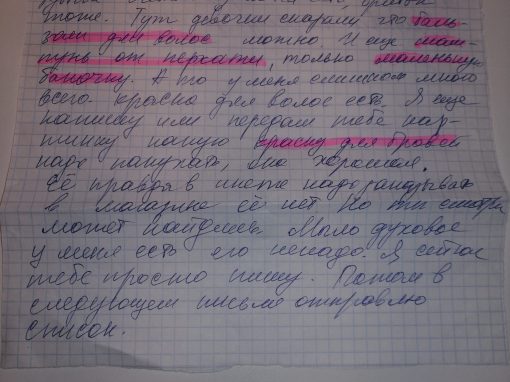 тоже. Тут девочки сказали что баль-
зам для волос можно. И ещё шам-
пунь от перхоти, только маленькую
баночку. А то у меня слишком много
всего. краска для волос есть. Я ещё
напишу или передам тебе кар-
тинку какую краску для бровей
надо покупать, она хорошая.
Её правда в инете надо заказывать
в магазине её нет Но ты смотри
может найдёшь. Мыло духовое
у меня есть его ненадо. Я сейчас
тебе просто пишу. Потом в
следующем письме отправлю
список.